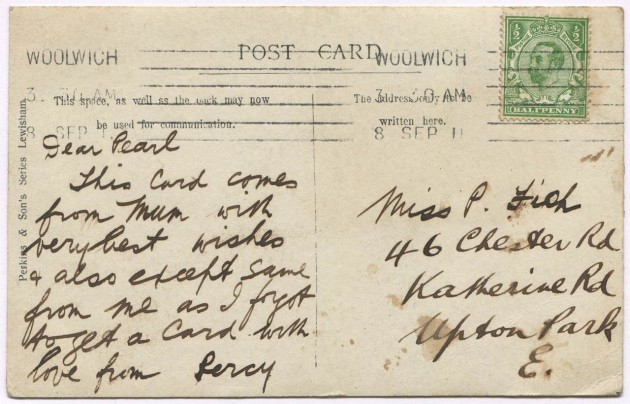 WOOLWICH
POST CARD
WOOLWICH
½ ½
HALFPENNY
3. 30 AM
8 SEP 11
3. 30 AM
8 SEP 11
This space, as well as the back may now
be used for communication.
The address only to be
written here.
Perkins & Son's Series Lewisham.
Dear Pearl
This Card comes
from Mum with
very best wishes
& also except same
from me as I forgot
to get a Card with
love from Percy
Miss P.
46 Chester Rd
Katherine Rd
Upton Park
E.